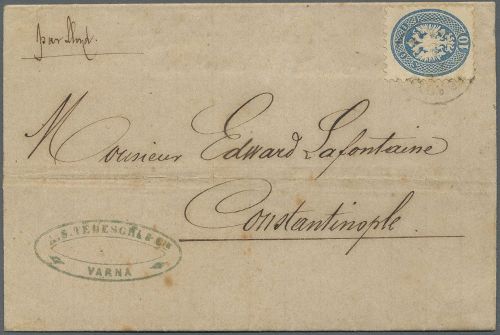 par Lloyd.
10
Monsieur Edward Lafontaine
Constantinople
S. TEDESCHI & Cie
VARNA